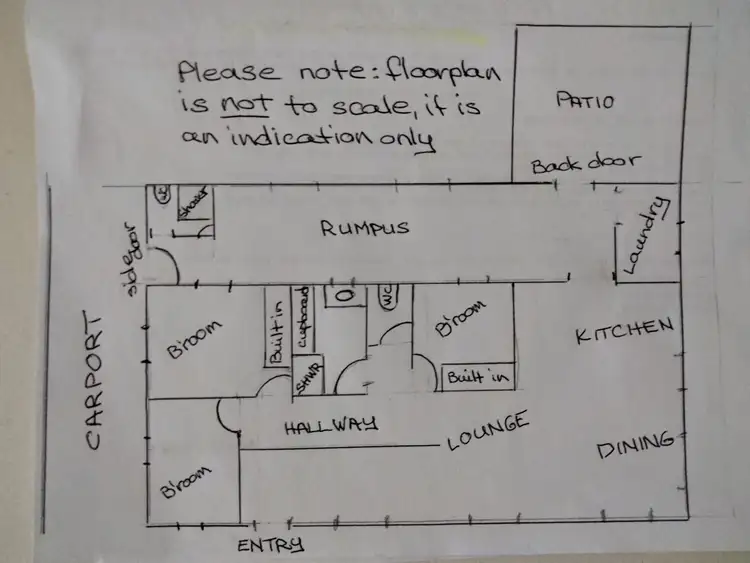 Please note: floorplan
is not to scale, it is
an indication only
PATIO
Back door
WC
Shower
RUMPUS
Laundry
side door
B'room
Built in
cupboard
WC
B'room
KITCHEN
CARPORT
SHWR
Built in
HALLWAY
LOUNGE
DINING
B'room
ENTRY